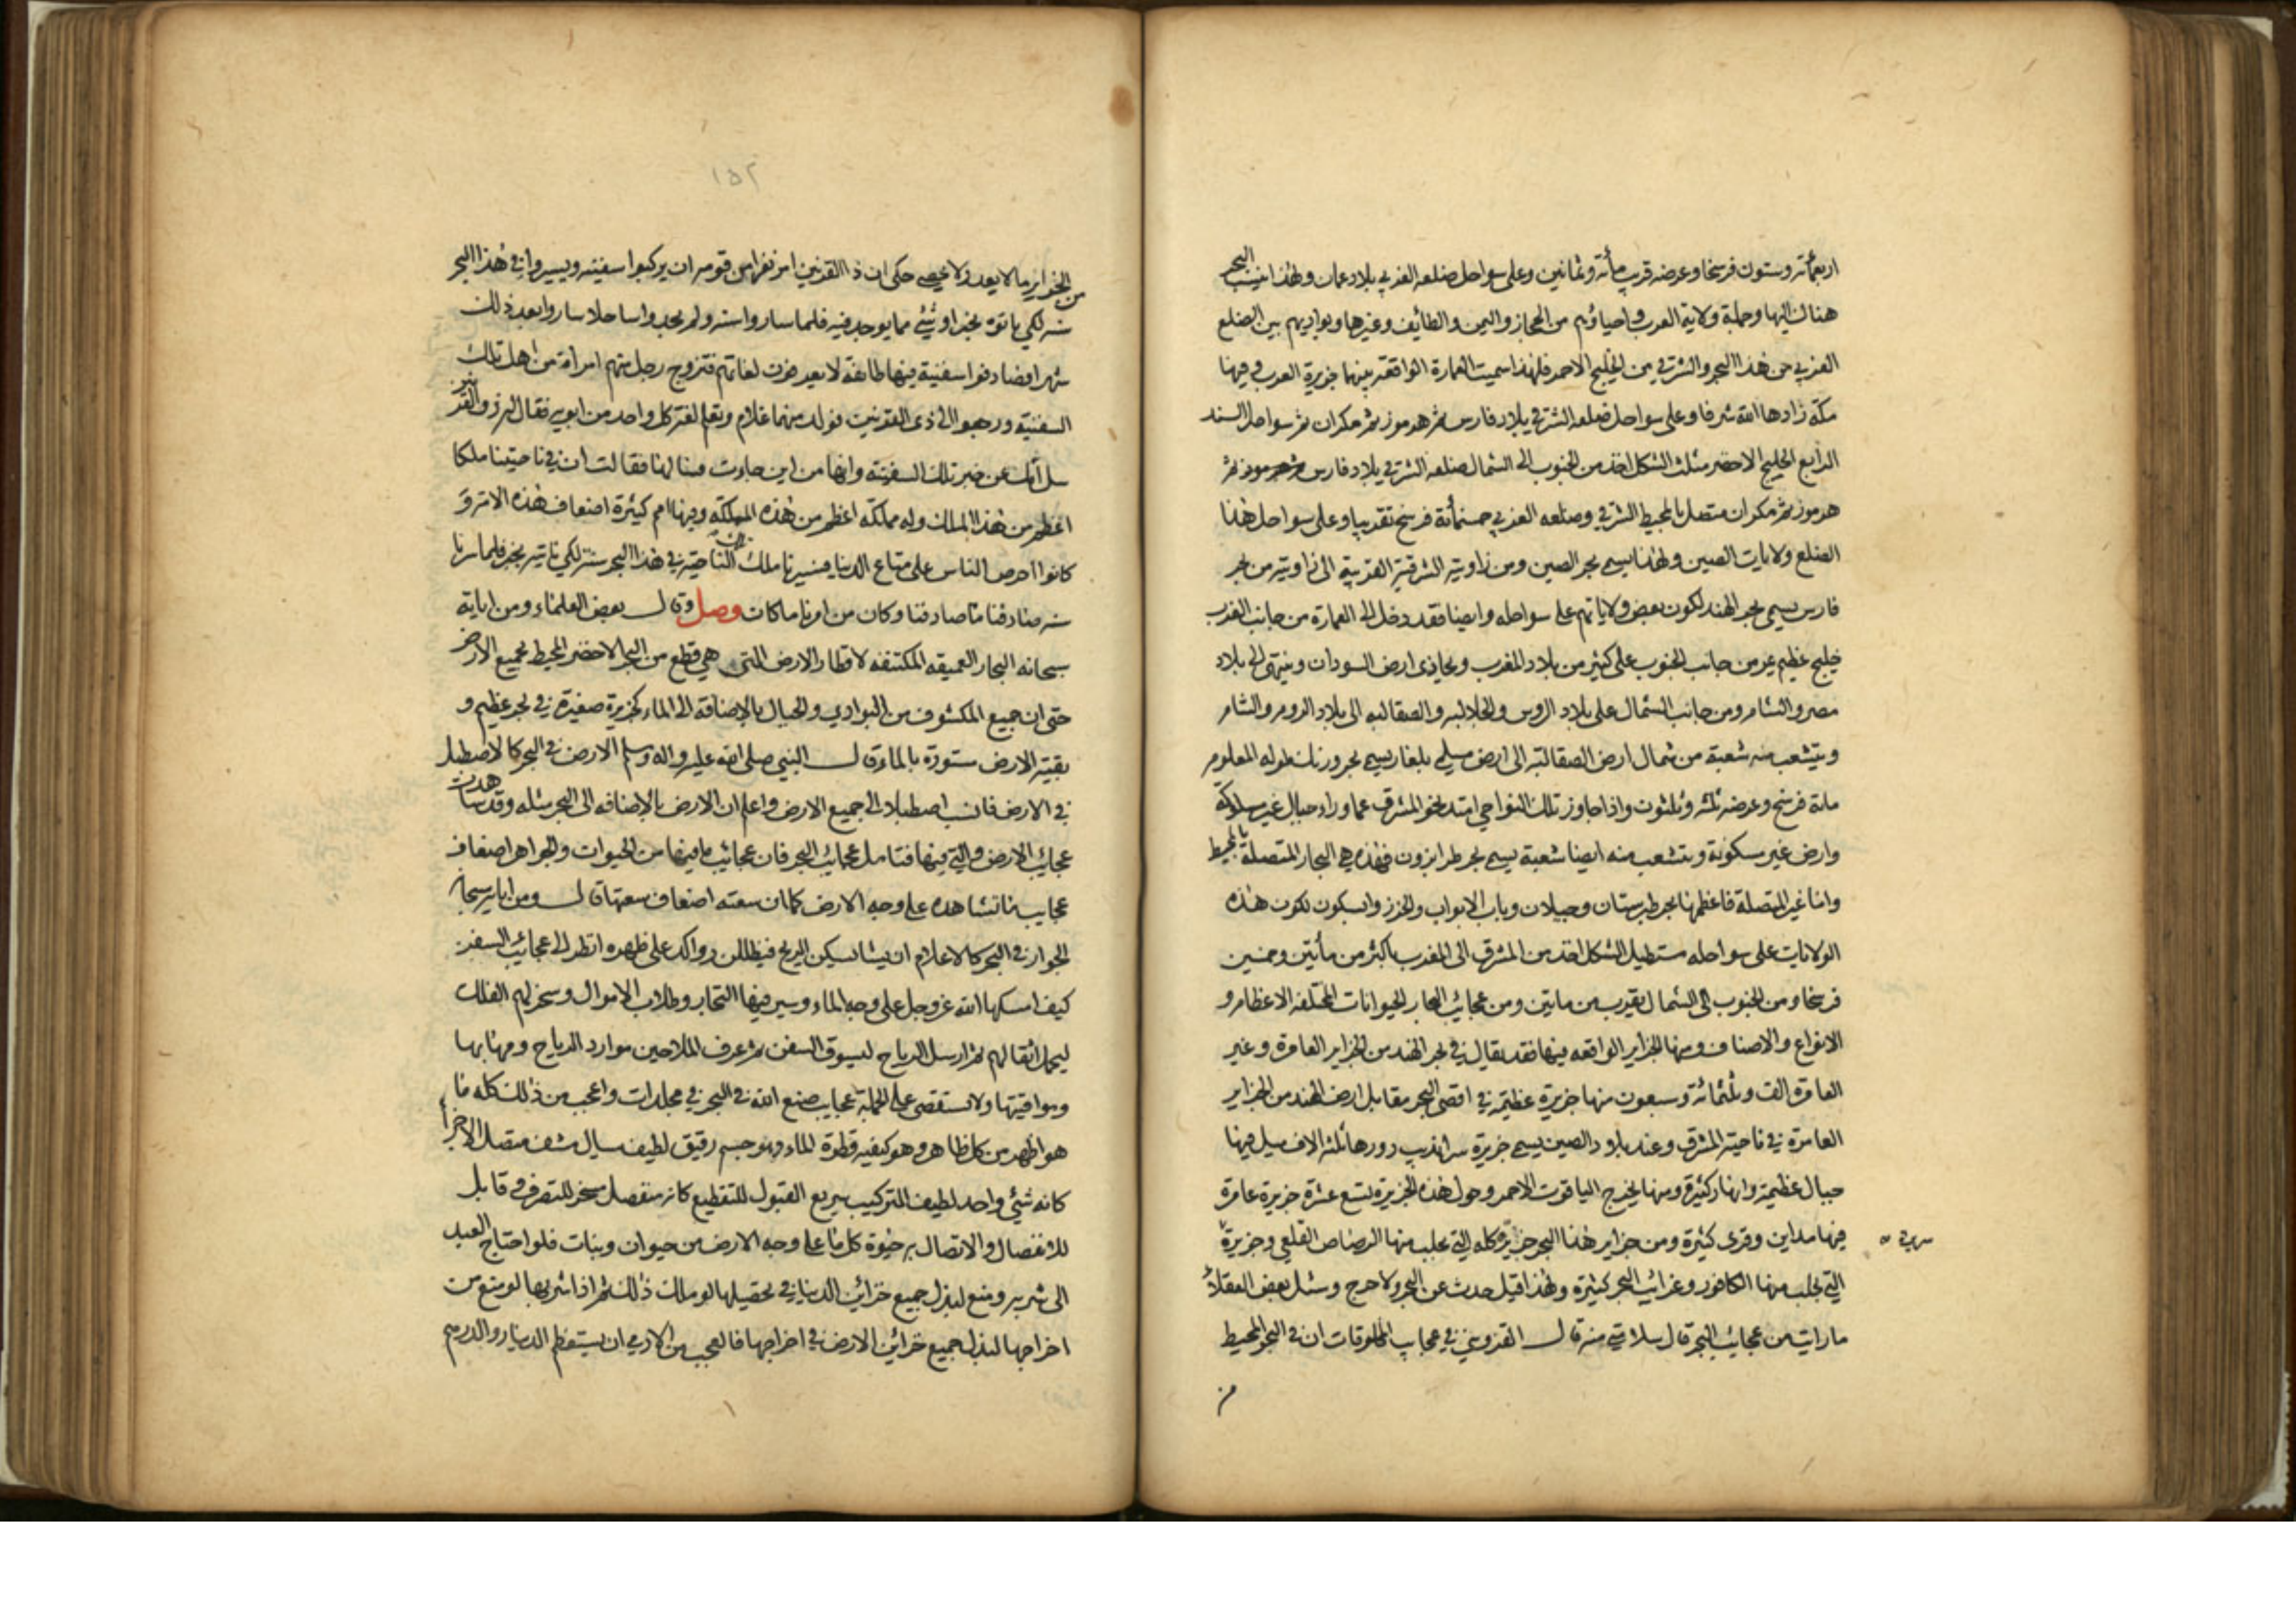 اربعمائة وستون فرسخا وعرضه قريب مأتة وثمانين وعلى سواحل ضلعه الغربي بلاد عمان ولهذا ينسب البحر
هناك اليها وجملة ولاية العرب واحياؤهم من الحجاز واليمن والطائف وغيرها وبواديهم بين الضلع
الغربي من هذا البحر والشرقي من الخليج الاحمر فلهذا سميت العمارة الواقعة بينهما جزيرة العرب وفيها
مكة زادها الله شرفا وعلى سواحل ضلعه الشرقي بلاد فارس ثم هرموز ثم مكران ثم سواحل السند
الرابع الخليج الاخضر مثلث الشكل اخذ من الجنوب الى الشمال ضلعه الشرقي بلاد فارس ثم
هرموز ثم مكران متصل بالمحيط الشرقي وضلعه الغربي خمسمأتة فرسخ تقريبا وعلى سواحل هذا
الضلع ولايات الصين ولهذا يسمى بحر الصين ومن زاويته الشرقية الغربية الى زاويته من بحر
فارس يسمى بحر الهند لكون بعض ولاياتهم على سواحله وايضا فقد دخل الى العمارة من جانب الغرب
خليج عظيم يمر من جانب الجنوب على كثير من بلاد المغرب ويحاذى ارض السودان وينتهى الى بلاد
مصر والشام ومن جانب الشمال على بلاد الروس والجلالبه والصقالبه الى بلاد الروم والشام
ويتشعب منه شعبة من شمال ارض الصقالبة الى ارض مسلمى بلغار يسمى بحر ورنك طوله المعلوم
مائة فرسخ وعرضه ثلثه وثلثون واذا جاوز تلك النواحي امتد نحو المشرق عما وراء جبال غير مسلوكة
وارض غير مسكونة ويتشعب منه ايضا شعبة يسمى بحر طرابزون فهذه هي البحار المتصلة بالمحيط
واما غير المتصلة فاعظمها بحر طبرستان وجيلان وباب الابواب والخزر وابسكون لكون هذه
الولايات على سواحله مستطيل الشكل اخذ من المشرق الى المغرب باكثر من مأتين وخمسين
فرسخا ومن الجنوب الى الشمال بقريب من مايتين ومن عجائب البحار الحيوانات المختلفه الاعظام و
الانواع والاصناف ومنها الجزاير الواقعه فيها فقد يقال في بحر الهند من الجزاير العامرة وغير
العامرة الف وثلثمائة وسبعون منها جزيرة عظيمة في اقصى البحر مقابل ارض الهند من الجزاير
العامرة في ناحية المشرق وعند بلاد الصين يسمى جزيرة سرانديب دورها ثلثة الاف ميل فيها
جبال عظيمة وانهار كثيرة ومنها يخرج الياقوت الاحمر وحول هذه الجزيرة تسع عشرة جزيرة عامرة
فيها مداين وقرى كثيرة ومن جزاير هذا البحر جزيرة كله التي يجلب منها الرصاص القلعي وجزيرة
التي يجلب منها الكافور وغرائب البحر كثيرة ولهذا قيل حدث عن البحر ولا حرج وسئل بعض العقلاء
ما رايت من عجائب البحر قال سلامتي منه قال القزويني في عجايب المخلوقات ان في البحر المحيط
من
١٥٢
من الجزاير ما لا يعد ولا يحصى حكى ان ذا القرنين امر نفرا من قومه ان يركبوا سفينه ويسيروا في هذا البحر
سنه لكي ياتوه بخبر او شئ مما يوجد فيه فلما ساروا سنه ولم يجدوا ساحلا ساروا بعد ذلك
شهرا فصادفوا سفينة فيها طائفة لا يعرفون لغاتهم فتزوج رجل منهم امرأة من اهل تلك
السفينة ورجعوا الى ذى القرنين فولد منهما غلام وتعلم لغة كل واحد من ابويه فقال له ذو القرنين
سل امك عن خبر تلك السفينة وانها من اين جاءت فسالها فقالت ان في ناحيتنا ملكا
اعظم من هذا الملك وله مملكة اعظم من هذه المملكة وفيها امم كثيرة اضعاف هذه الامة وَ
كانوا احرص الناس على متاع الدنيا فسيرنا ملك تلك الناحية في هذا البحر سنة لكي ناتيه بخبر فلما سرنا
سنه صادفنا ما صادفنا وكان من امرنا ما كان وصل وقال بعض العلماء ومن اياته
سبحانه البحار العميقه المكتنفه لاقطار الارض التي هي قطع من البحر الاخضر المحيط بجميع الارض
حتى ان جميع المكشوف من البوادي والجبال بالاضافة الى الماء كجزيرة صغيرة في بحر عظيم و
بقية الارض مستورة بالماء قال النبي صلى الله عليه واله وسلم الارض في البحر كالاصطبل
في الارض فانسب اصطبلا الى جميع الارض واعلم ان الارض بالاضافه الى البحر مثله وقد شاهدت
عجائب الارض والتي فيها فتامل عجائب البحر فان عجائب ما فيها من الحيوان والجواهر اضعاف
عجايب ما تشاهده على وجه الارض كما ان سعته اضعاف سعتها قال ومن اياته سبحانه
الجوار في البحر كالاعلام ان يشا يسكن الريح فيظللن رواكد على ظهره انظر الى عجائب السفن
كيف امسكها الله عز وجل على وجه الماء وسير فيها التجار وطلاب الاموال وسخر لهم الفلك
ليحمل اثقالهم ثم ارسل الرياح ليسوق السفن ثم عرف الملاحين موارد الرياح ومهابها
ومواقيتها ولا تستقصى على الجملة عجايب صنع الله في البحر في مجلدات واعجب من ذلك كله ما
هو اظهر من كل ظاهر وهو كيفيه قطرة الماء وهو جسم رقيق لطيف سيال مشف متصل الاجزاء
كانه شئ واحد لطيف التركيب سريع القبول للتقطيع كانه منفصل مسخر للتصرف قابل
للانفصال والاتصال به حيوة كل ما على وجه الارض من حيوان ونبات فلو احتاج العبد
الى شربه ومنع لبذل جميع خزائن الدنيا في تحصيلها لو ملك ذلك ثم اذا شربها لو منع من
اخراجها لبذل جميع خزائن الارض في اخراجها فالعجب من الادمي ان يستعظم الدينار والدرهم